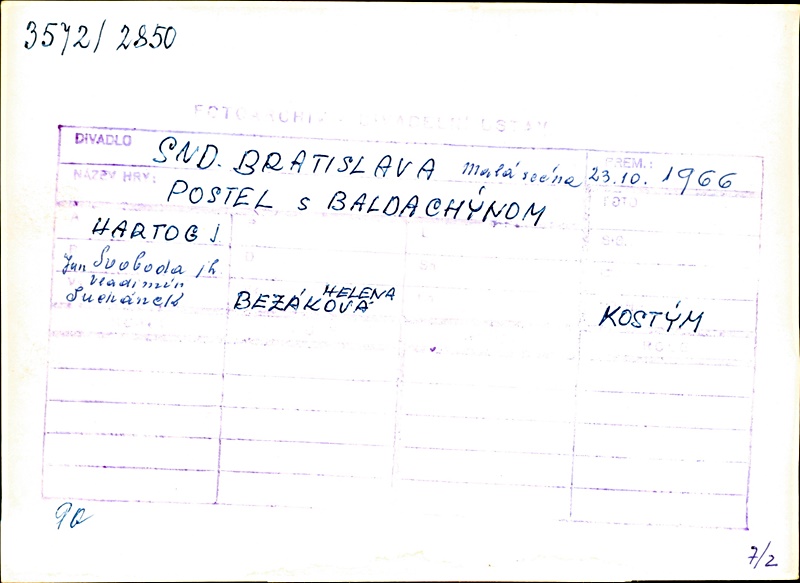 3572/2850
FOTOARCHIV DIVADELNÝ ÚSTAV
DIVADLO SND. BRATISLAVA Malá scéna PREM.: 23.10. 1966
NÁZEV HRY: POSTEL s BALDACHÝNOM FOTO
HARTOG J
Jan Svoboda j.h.
Vladimír
Suchánek
HELENA
BEZÁKOVÁ KOSTÝM
90
7/2